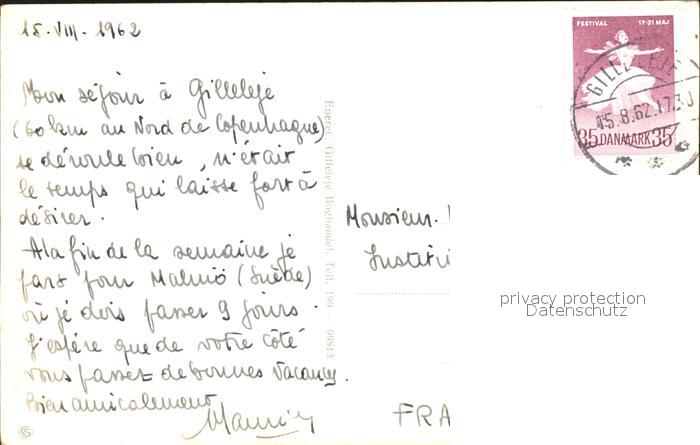 15. VIII. 1962
Mon séjour à Gilleleje
(60 km au Nord de Copenhague)
se déroule bien, n'était
le temps qui laisse fort à
désirer.
A la fin de la semaine je
pars pour Malmö (Suède)
où je dois passer 9 jours.
J'espère que de votre côté
vous passez de bonnes vacances.
Bien amicalement
Eneret: Gilleleje Boghandel. Telf. 199 — 99813
FESTIVAL 17-31 MAJ
GILLELEJE
15.8.62.17.30
35 DANMARK 35
Monsieur
FRA
privacy protection
Datenschutz